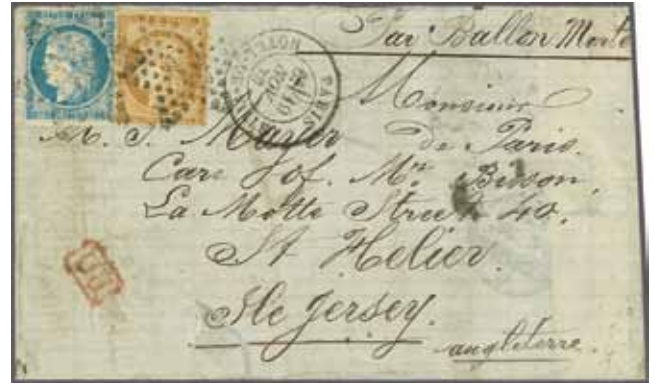 Par Ballon Monté
PARIS
Monsieur
M. J. Mayer de Paris.
Care of. Mr. Buson,
La Motte Street 40.
St Helier.
PD
Ile Jersey.
angleterre.